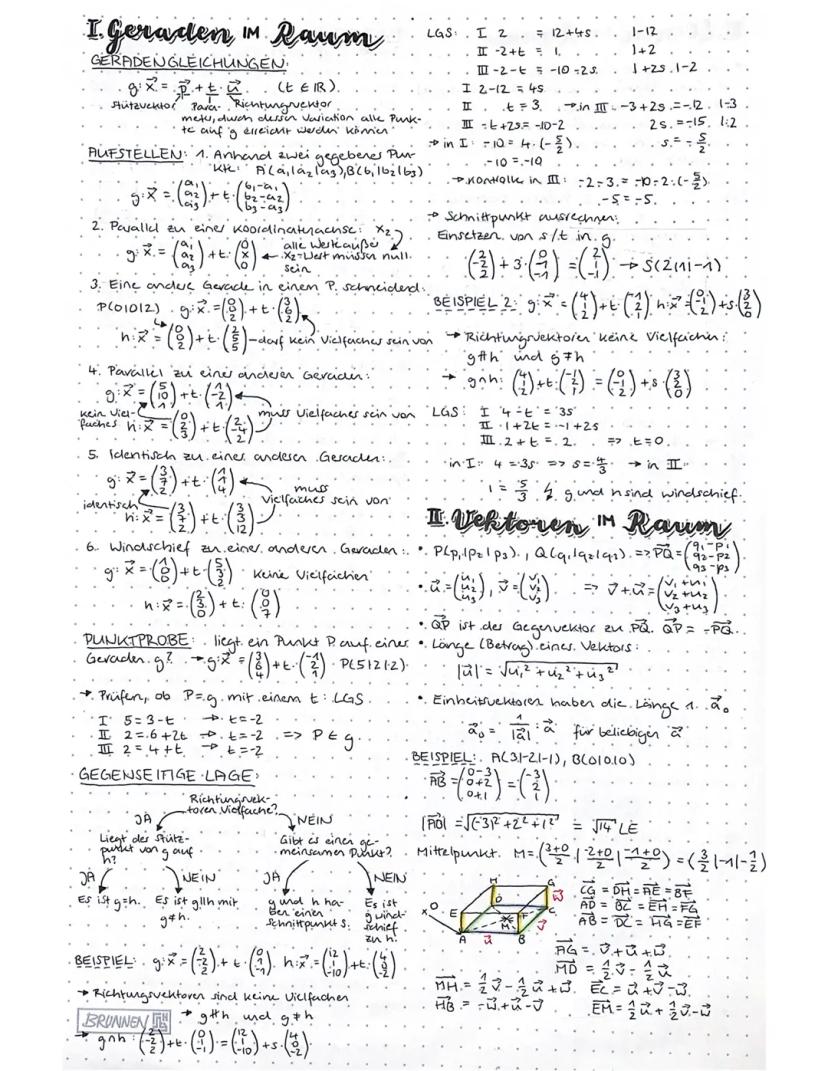 I. Geraden IM Raum
GERADENGLEICHUNGEN:
g: x⃗ = p⃗ + t · u⃗ (t ∈ ℝ)
Stützvektor Para- Richtungsvektor
meter, durch dessen Variation alle Punk-
te auf g erreicht werden können
AUFSTELLEN: 1. Anhand zwei gegebener Pun-
kte: A(a₁|a₂|a₃), B(b₁|b₂|b₃)
g: x⃗ = (a₁ a₂ a₃) + t · (b₁-a₁ b₂-a₂ b₃-a₃)
2. Parallel zu einer Koordinatenachse: x₂
g: x⃗ = (a₁ a₂ a₃) + t · (0 x 0) alle Werte außer
x₂-Wert müssen null
sein
3. Eine andere Gerade in einem P. schneidend:
P(0|0|2) g: x⃗ = (0 0 2) + t · (3 6 2)
h: x⃗ = (0 0 2) + t · (2 5 5) – darf kein Vielfaches sein von
4. Parallel zu einer anderen Geraden:
g: x⃗ = (5 10 1) + t · (1 -2 1)
kein Viel-
faches h: x⃗ = (0 2 3) + t · (2 -4 2) muss Vielfaches sein von
5. Identisch zu einer anderen Geraden:
g: x⃗ = (3 7 2) + t · (1 1 4) muss
Vielfaches sein von
identisch
h: x⃗ = (3 7 2) + t · (3 3 12)
6. Windschief zu einer anderen Geraden:
g: x⃗ = (1 0 0) + t · (5 3 2) keine Vielfachen
h: x⃗ = (2 3 0) + t · (0 0 7)
PUNKTPROBE: liegt ein Punkt P auf einer
Geraden g? → g: x⃗ = (3 6 4) + t · (-1 2 1) P(5|2|2)
→ Prüfen, ob P = g mit einem t: LGS
I 5 = 3 - t → t = -2
II 2 = 6 + 2t → t = -2 => P ∈ g
III 2 = 4 + t → t = -2
GEGENSEITIGE LAGE:
Richtungsvek-
toren Vielfache?
JA NEIN
Liegt der Stütz-
punkt von g auf
h?
Gibt es einen ge-
meinsamen Punkt?
JA NEIN JA NEIN
Es ist g=h.
Es ist g||h mit
g≠h.
g und h ha-
ben einen
Schnittpunkt S.
Es ist
g wind-
schief
zu h.
BEISPIEL: g: x⃗ = (2 -2 2) + t · (0 1 -1) h: x⃗ = (12 1 -10) + t · (4 0 -2)
→ Richtungsvektoren sind keine Vielfachen
→ g∦h und g≠h
BRUNNEN
→ g∩h: (2 -2 2) + t · (0 1 -1) = (12 1 -10) + s · (4 0 -2)
LGS: I 2 = 12+4s |-12
II -2+t = 1 |+2
III -2-t = -10-2s |+2s |-2
I 2-12 = 4s
II t = 3 → in III -3+2s = -12 |-3
III -t+2s = -10-2 2s = -15 |:2
→ in I: -10 = 4·(-5/2) s = -5/2
-10 = -10
→ Kontrolle in III: -2-3 = -10-2·(-5/2)
-5 = -5
→ Schnittpunkt ausrechnen:
Einsetzen von s/t in g
(2 -2 2) + 3·(0 1 -1) = (2 1 -1) → S(2|1|-1)
BEISPIEL 2: g: x⃗ = (4 1 2) + t · (-1 2 1) h: x⃗ = (0 -1 2) + s · (3 2 0)
→ Richtungsvektoren keine Vielfachen:
g∦h und g≠h
→ g∩h: (4 1 2) + t · (-1 2 1) = (0 -1 2) + s · (3 2 0)
LGS: I 4-t = 3s
II 1+2t = -1+2s
III 2+t = 2 => t=0
in I: 4 = 3s => s = 4/3 → in II
1 = 5/3 ↯ g und h sind windschief
II. Vektoren IM Raum
• P(p₁|p₂|p₃), Q(q₁|q₂|q₃) => PQ⃗ = (q₁-p₁ q₂-p₂ q₃-p₃)
• u⃗ = (u₁ u₂ u₃), v⃗ = (v₁ v₂ v₃) => v⃗+u⃗ = (v₁+u₁ v₂+u₂ v₃+u₃)
• QP⃗ ist der Gegenvektor zu PQ⃗. QP⃗ = -PQ⃗
• Länge (Betrag) eines Vektors:
|u⃗| = √(u₁² + u₂² + u₃²)
• Einheitsvektoren haben die Länge 1. a⃗₀
a⃗₀ = 1/|a⃗| · a⃗ für beliebigen a⃗
BEISPIEL: A(3|-2|-1), B(0|0|0)
AB⃗ = (0-3 0+2 0+1) = (-3 2 1)
|AB⃗| = √((-3)² + 2² + 1²) = √14 LE
Mittelpunkt M = (3+0/2 | -2+0/2 | -1+0/2) = (3/2 |-1|-1/2)
H G
D
E F C
M
A B
x O
u⃗ v⃗ w⃗
CG⃗ = DH⃗ = AE⃗ = BF⃗
AD⃗ = BC⃗ = EH⃗ = FG⃗
AB⃗ = DC⃗ = HG⃗ = EF⃗
AG⃗ = v⃗+u⃗+w⃗
MD⃗ = 1/2 v⃗ - 1/2 u⃗
MH⃗ = 1/2 v⃗ - 1/2 u⃗ + w⃗ EC⃗ = u⃗+v⃗-w⃗
HB⃗ = -w⃗+u⃗-v⃗ EM⃗ = 1/2 u⃗ + 1/2 v⃗ - w⃗